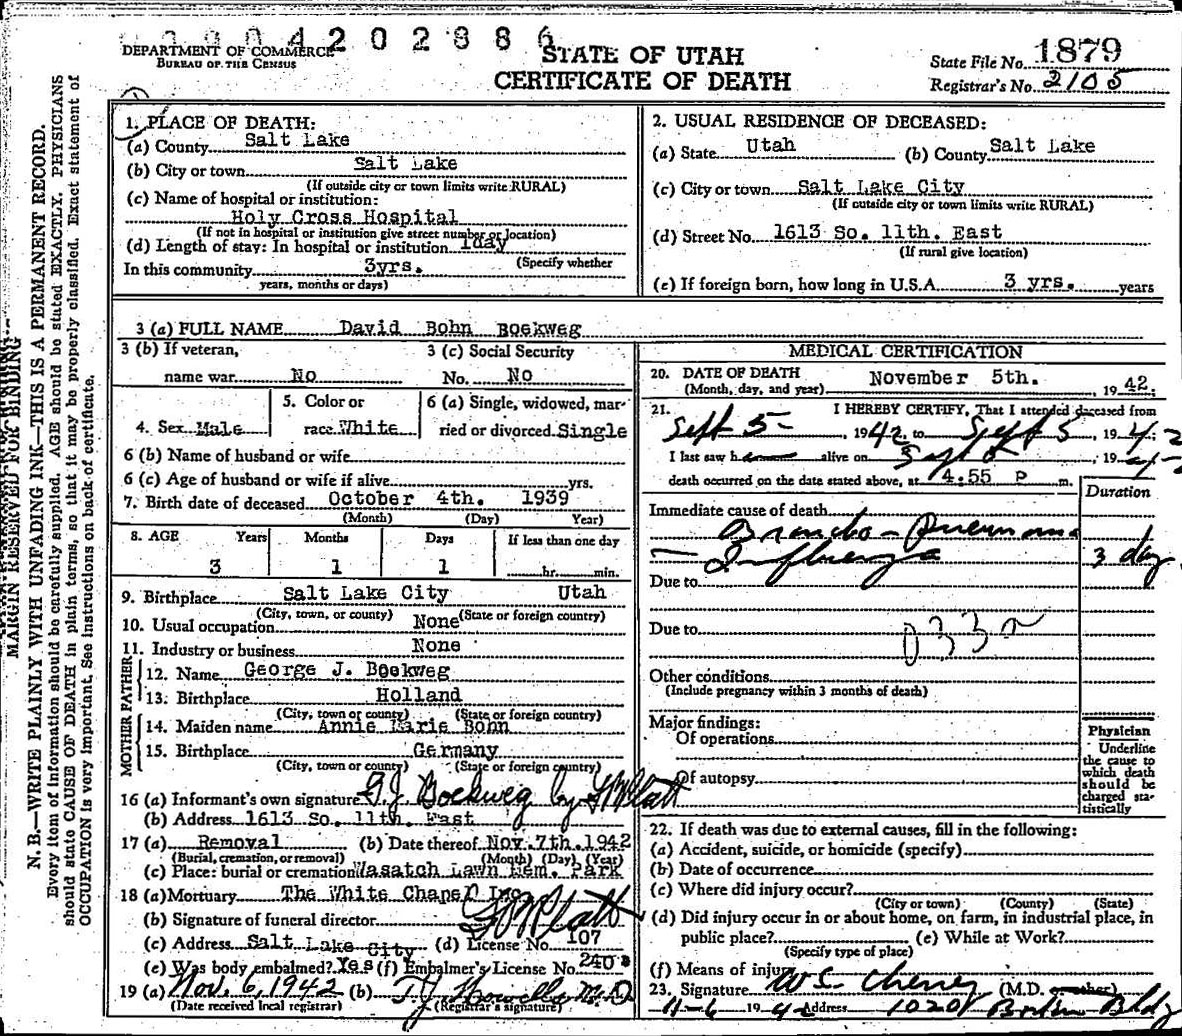 3904202886
DEPARTMENT OF COMMERCE
BUREAU OF THE CENSUS
STATE OF UTAH
CERTIFICATE OF DEATH
State File No. 1879
Registrar's No. 2105
MARGIN RESERVED FOR BINDING
N. B.—WRITE PLAINLY WITH UNFADING INK—THIS IS A PERMANENT RECORD.
Every item of information should be carefully supplied. AGE should be stated EXACTLY. PHYSICIANS
should state CAUSE OF DEATH in plain terms, so that it may be properly classified. Exact statement of
OCCUPATION is very important. See instructions on back of certificate.
1. PLACE OF DEATH:
(a) County Salt Lake
(b) City or town Salt Lake
(If outside city or town limits write RURAL)
(c) Name of hospital or institution:
Holy Cross Hospital
(If not in hospital or institution give street number or location)
(d) Length of stay: In hospital or institution 1day
(Specify whether
In this community 3yrs.
years, months or days)
2. USUAL RESIDENCE OF DECEASED:
(a) State Utah (b) County Salt Lake
(c) City or town Salt Lake City
(If outside city or town limits write RURAL)
(d) Street No. 1613 So. 11th. East
(If rural give location)
(e) If foreign born, how long in U.S.A. 3 yrs. years
3 (a) FULL NAME David Bohn Boekweg
3 (b) If veteran, 3 (c) Social Security
name war No No. No
4. Sex Male 5. Color or race White 6 (a) Single, widowed, married or divorced Single
6 (b) Name of husband or wife
6 (c) Age of husband or wife if alive yrs.
7. Birth date of deceased October 4th. 1939
(Month) (Day) Year)
8. AGE Years Months Days If less than one day
3 1 1 hr. min.
9. Birthplace Salt Lake City Utah
(City, town, or county) (State or foreign country)
10. Usual occupation None
11. Industry or business None
FATHER
12. Name George J. Boekweg
13. Birthplace Holland
(City, town or county) (State or foreign country)
MOTHER
14. Maiden name Annie Marie Bohn
15. Birthplace Germany
(City, town or county) (State or foreign country)
16 (a) Informant's own signature G J Boekweg by G W Platt
(b) Address 1613 So. 11th. East
17 (a) Removal (b) Date thereof Nov. 7th. 1942
(Burial, cremation, or removal) (Month) (Day) (Year)
(c) Place: burial or cremation Wasatch Lawn Mem. Park
18 (a) Mortuary The White Chapel Inc.
(b) Signature of funeral director G W Platt
(c) Address Salt Lake City (d) License No. 107
(e) Was body embalmed? Yes (f) Embalmer's License No. 240
19 (a) Nov. 6, 1942 (b) T J Howells M.D
(Date received local registrar) (Registrar's signature)
MEDICAL CERTIFICATION
20. DATE OF DEATH November 5th. 1942.
(Month, day, and year)
21. I HEREBY CERTIFY, That I attended deceased from
Sept 5- , 1942 to Sept 5 , 1942
I last saw h alive on Sept 5 , 194-2
death occurred on the date stated above, at 4:55 P m.
Duration
Immediate cause of death
Broncho-pneumonia
- Influenza 3 day
Due to
Due to
033
Other conditions
(Include pregnancy within 3 months of death)
Major findings:
Of operations
Of autopsy
Physician
Underline
the cause to
which death
should be
charged sta-
tistically
22. If death was due to external causes, fill in the following:
(a) Accident, suicide, or homicide (specify)
(b) Date of occurrence
(c) Where did injury occur?
(City or town) (County) (State)
(d) Did injury occur in or about home, on farm, in industrial place, in
public place? (e) While at Work?
(Specify type of place)
(f) Means of injury
23. Signature W S Cheney (M.D. or other)
11-6 1942 Address 1020 Boston Bldg